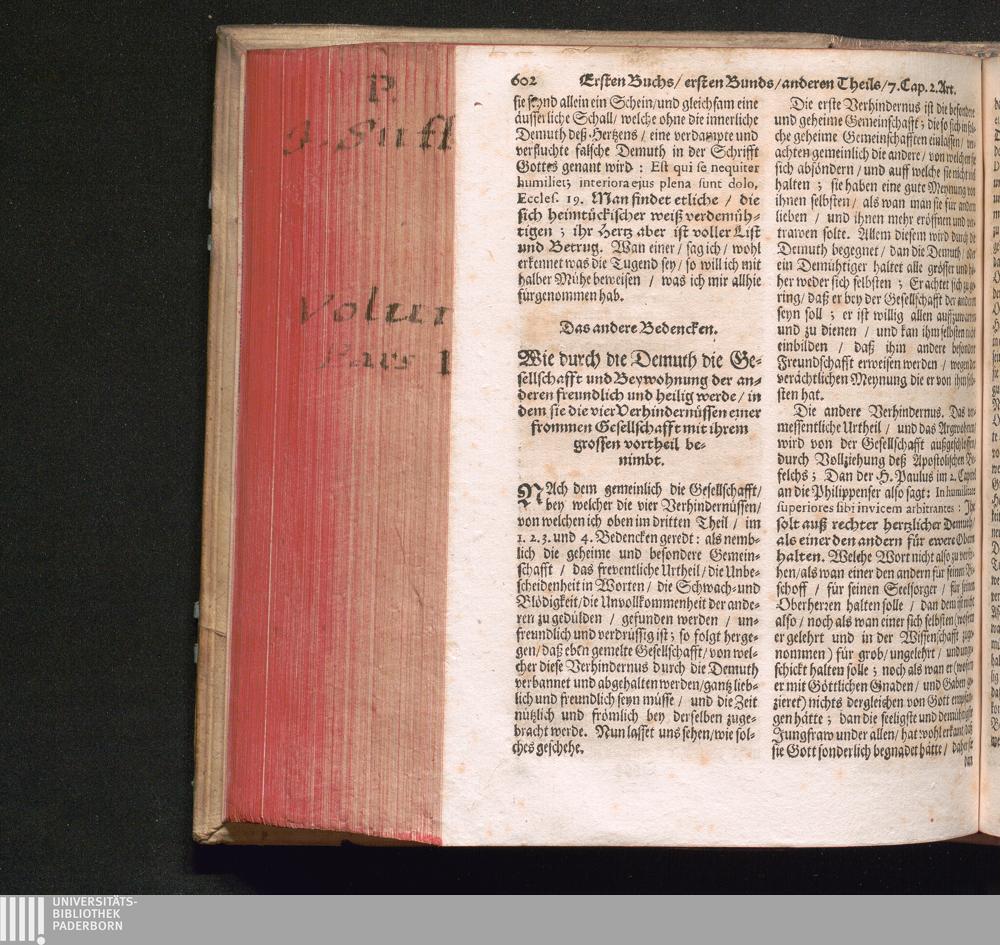 P.
J. Suff
Volum
Pars I
602 Ersten Buchs / ersten Bunds / anderen Theils / 7. Cap. 2. Art.
sie seynd allein ein Schein / und gleichsam eine
äusserliche Schall / welche ohne die innerliche
Demuth deß Hertzens / eine verdampte und
verfluchte falsche Demuth in der Schrifft
Gottes genant wird : Est qui se nequiter
humiliet; interiora ejus plena sunt dolo,
Eccles. 19. Man findet etliche / die
sich heimtückischer weiß verdemüh-
tigen ; ihr Hertz aber ist voller List
und Betrug. Wan einer / sag ich / wohl
erkennet was die Tugend sey / so will ich mit
halber Mühe beweisen / was ich mir allhie
fürgenommen hab.
Das andere Bedencken.
Wie durch die Demuth die Ge-
sellschafft und Beywohnung der an-
deren freundlich und heilig werde / in
dem sie die vier Verhindernüssen einer
frommen Gesellschafft mit ihrem
grossen vortheil be-
nimbt.
NAch dem gemeinlich die Gesellschafft /
bey welcher die vier Verhindernüssen /
von welchen ich oben im dritten Theil / im
1. 2. 3. und 4. Bedencken geredt : als nemb-
lich die geheime und besondere Gemein-
schafft / das freventliche Urtheil / die Unbe-
scheidenheit in Worten / die Schwach- und
Blödigkeit / die Unvollkommenheit der ande-
ren zu gedülden / gefunden werden / un-
freundlich und verdrüssig ist ; so folgt herge-
gen / daß eben gemelte Gesellschafft / von wel-
cher diese Verhindernus durch die Demuth
verbannet und abgehalten werden / gantz lieb-
lich und freundlich seyn müsse / und die Zeit
nützlich und frömlich bey derselben zuge-
bracht werde. Nun lasset uns sehen / wie sol-
ches geschehe.
Die erste Verhindernus ist die besondere
und geheime Gemeinschafft ; die so sich in sol-
che geheime Gemeinschafften einlassen / ver-
achten gemeinlich die andere / von welchen sie
sich absöndern / und auff welche sie nicht viel
halten ; sie haben eine gute Meynung von
ihnen selbsten / als wan man sie für andern
lieben / und ihnen mehr eröffnen und ver-
trawen solte. Allem diesem wird durch die
Demuth begegnet / dan die Demuth / oder
ein Demühtiger haltet alle grösser und hö-
her weder sich selbsten ; Er achtet sich zu ge-
ring / daß er bey der Gesellschafft der anderen
seyn soll ; er ist willig allen auffzuwarten
und zu dienen / und kan ihm selbsten nicht
einbilden / daß ihm andere besondere
Freundschafft erweisen werden / wegen der
verächtlichen Meynung die er von ihm selb-
sten hat.
Die andere Verhindernus. Das ver-
messentliche Urtheil / und das Argwohnen /
wird von der Gesellschafft außgeschlossen /
durch Vollziehung deß Apostolischen Be-
felchs ; Dan der H. Paulus im 2. Capitel
an die Philippenser also sagt : In humilitate
superiores sibi invicem arbitrantes : Ihr
solt auß rechter hertzlicher Demuth /
als einer den andern für ewere Obern
halten. Welche Wort nicht also zu verste-
hen / als wan einer den andern für seinen Bi-
schoff / für seinen Seelsorger / für seinen
Oberherren halten solle / dan dem ist nicht
also / noch als wan einer sich selbsten (wofern
er gelehrt und in der Wissenschafft zuge-
nommen) für grob / ungelehrt / und unge-
schickt halten solle ; noch als wan er (wofern
er mit Göttlichen Gnaden / und Gaben ge-
zieret) nichts dergleichen von Gott empfan-
gen hätte ; dan die seeligste und demühtigste
Jungfraw under allen / hat wohl erkant / daß
sie Gott sonderlich begnadet hätte / daher sie
dan
UNIVERSITÄTS-
BIBLIOTHEK
PADERBORN